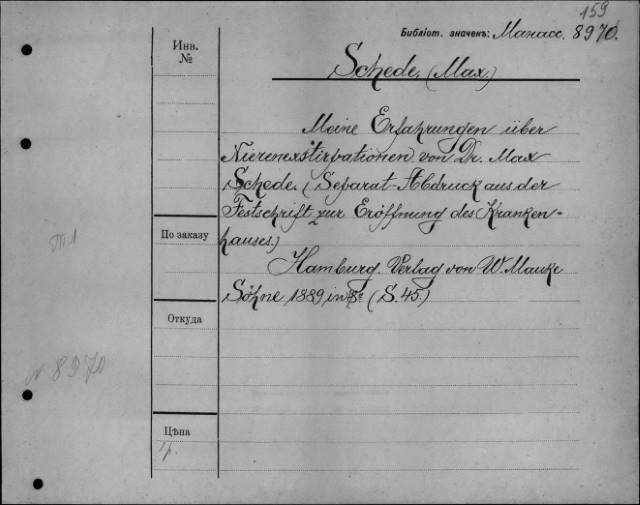 159
Библіот. значекъ: Манасс. 8970.
Инв.
№
Schede, (Max.)
Meine Erfahrungen über
Nierenexstirpationen von Dr. Max
Schede. (Separat-Abdruck aus der
Festschrift zur Eröffnung des Kranken-
hauses.)
По заказу
П.1
Hamburg. Verlag von W. Mauke
Söhne 1889 in 8º (S. 45.)
Откуда
№ 8970
Цѣна